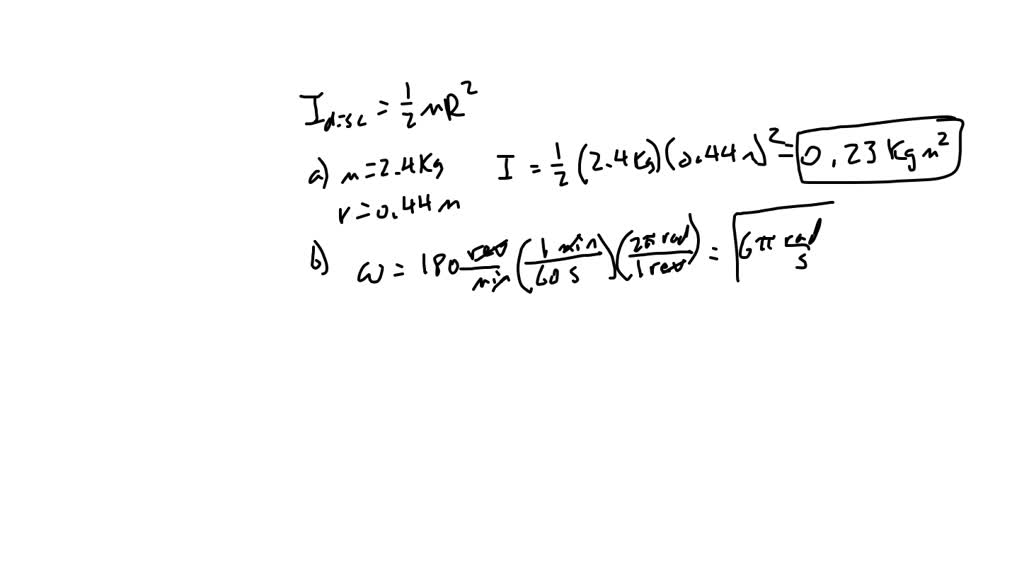 I disc = 1/2 mR²
a) m = 2.4 Kg I = 1/2 (2.4 Kg)(0.44 m)² = 0.23 Kg m²
r = 0.44 m
b) ω = 180 rev/min (1 min/60 s)(2π rad/1 rev) = 6π rad/s